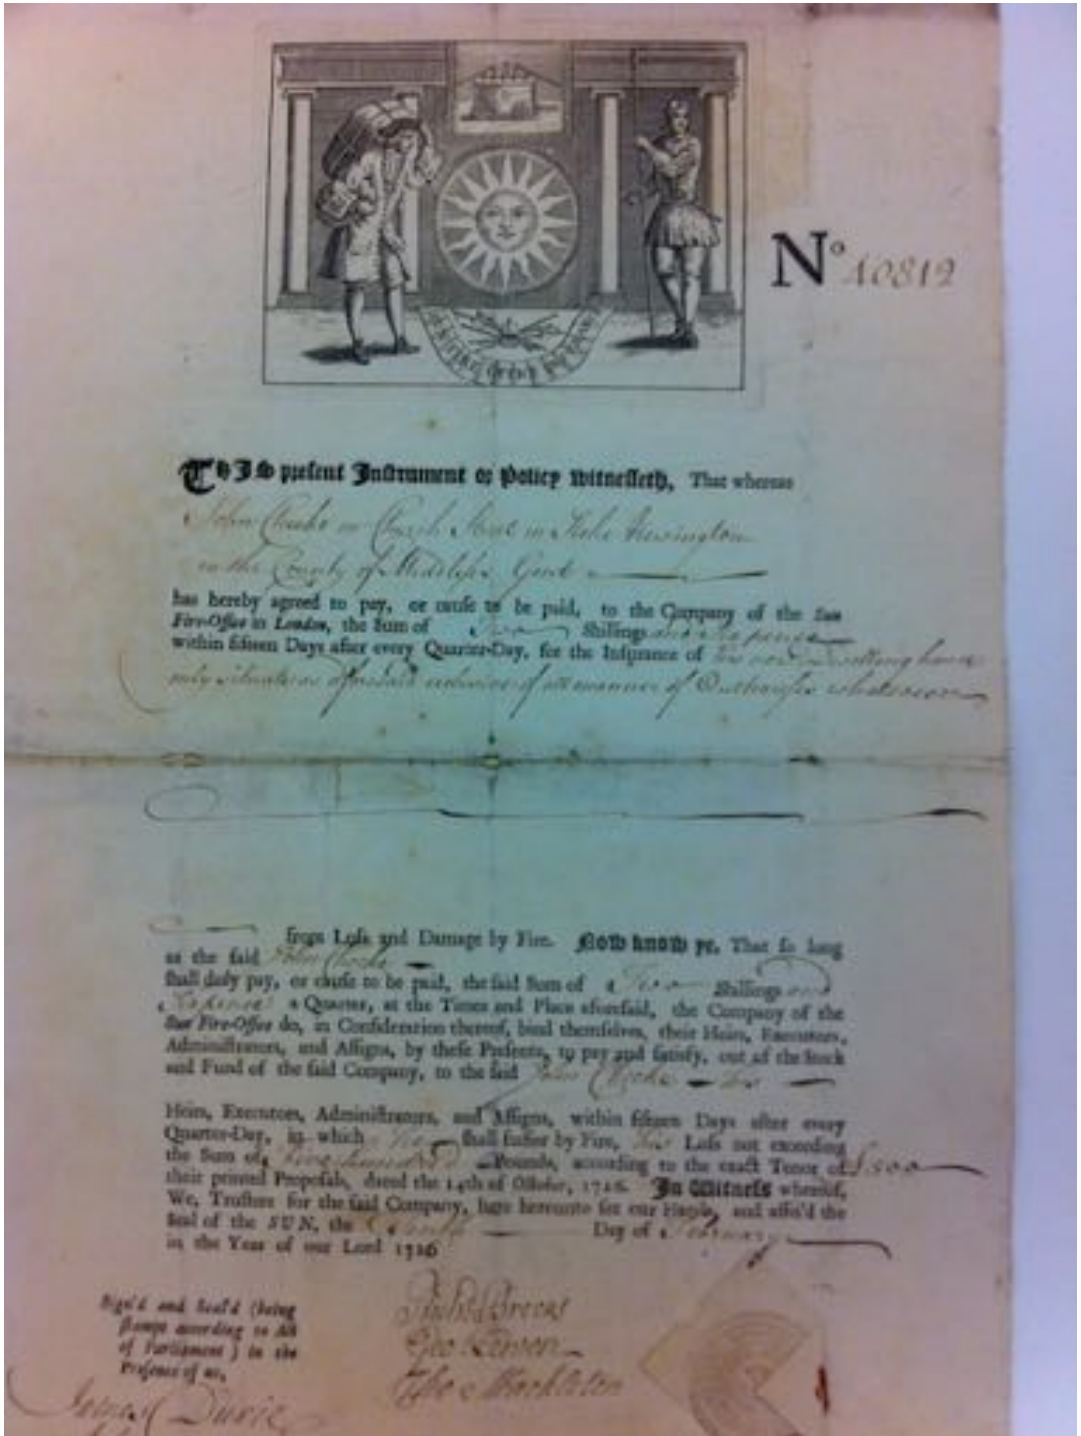 No 10812
THIS present Instrument or Policy witnesseth, That whereas
John Cheeke in Church Street in Stoke Newington
in the County of Middlesex Gent
has hereby agreed to pay, or cause to be paid, to the Company of the Sun
Fire-Office in London, the Sum of Two Shillings and sixpence
within fifteen Days after every Quarter-Day, for the Insurance of his now Dwelling house
only situate as aforesaid exclusive of all manner of Outhouses whatsoever
from Loss and Damage by Fire. Now know ye, That so long
as the said John Cheeke
shall duly pay, or cause to be paid, the said Sum of Two Shillings and
Sixpence a Quarter, at the Times and Place aforesaid, the Company of the
Sun Fire-Office do, in Consideration thereof, bind themselves, their Heirs, Executors,
Administrators, and Assigns, by these Presents, to pay and satisfy, out of the Stock
and Fund of the said Company, to the said John Cheeke his
Heirs, Executors, Administrators, and Assigns, within fifteen Days after every
Quarter-Day, in which he shall suffer by Fire, his Loss not exceeding
the Sum of five hundred Pounds, according to the exact Tenor of £500
their printed Proposals, dated the 14th of October, 1726. In Witness whereof,
We, Trustees for the said Company, have hereunto set our Hands, and affix'd the
Seal of the SUN, the Day of February
in the Year of our Lord 1726
Sign'd and Seal'd (being
stampt according to Act
of Parliament) in the
Presence of us,
Geo
Tho
James